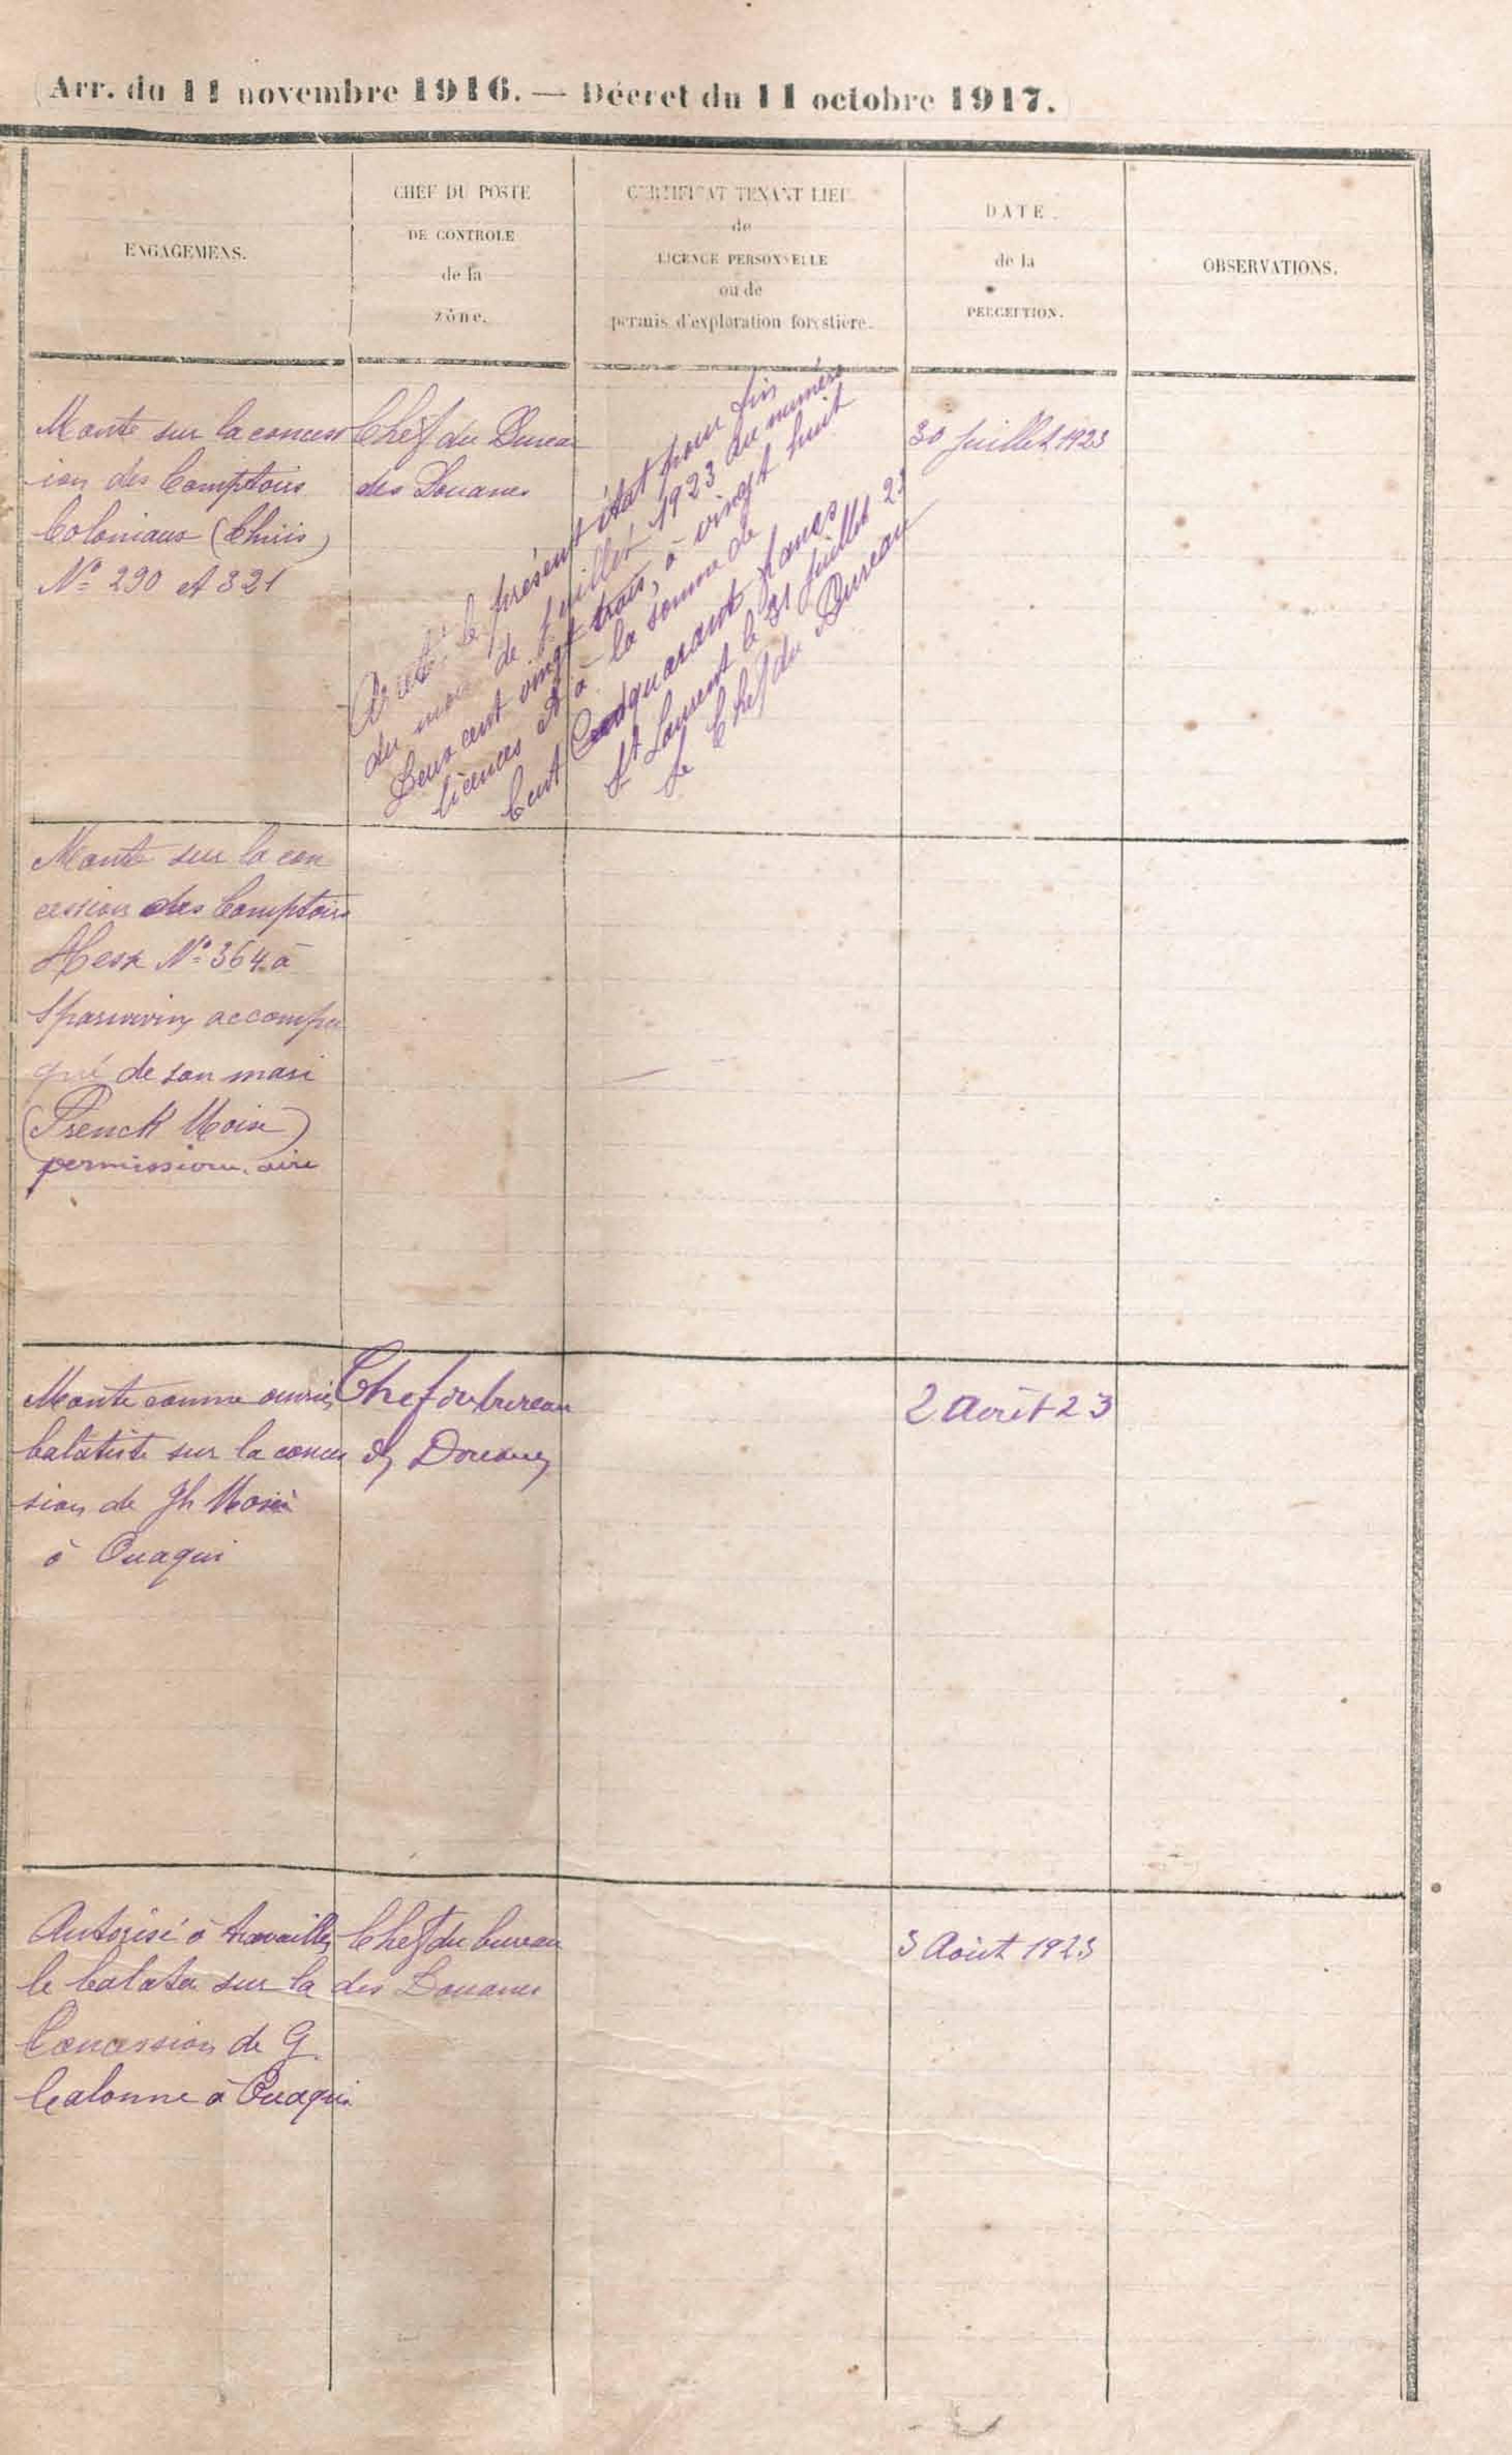 Arr. du 11 novembre 1916. — Décret du 11 octobre 1917.
ENGAGEMENS.
CHEF DU POSTE
DE CONTROLE
de la
zône.
CERTIFICAT TENANT LIEU
de
LICENCE PERSONNELLE
ou de
permis d'exploration forestière.
DATE
de la
PERCEPTION.
OBSERVATIONS.
Monte sur la concess
ion des Comptoirs
Coloniaux (Chiris)
Nº 290 et 321
Chef du Bureau
des Douanes
Arrêté le présent état pour fin
du mois de Juillet 1923 au numéro
Deux cent vingt trois, à vingt huit
licences et à la somme de
Cent quarante francs
St Laurent le 31 Juillet 23
Le Chef du Bureau
30 Juillet 1923
Monte sur la con
cession des Comptoirs
Hesse Nº 364 à
Sparwin accompa
gné de son mari
(Prenck Moïse)
permissionnaire
Monte comme ouvrier
balatiste sur la conces
sion de Jh
à Ouaqui
Chef du bureau
des Douanes
2 Août 23
Autorisé à travailler
le balata sur la
Concession de G.
Calonne à Ouaqui
Chef du bureau
des Douanes
3 Août 1923